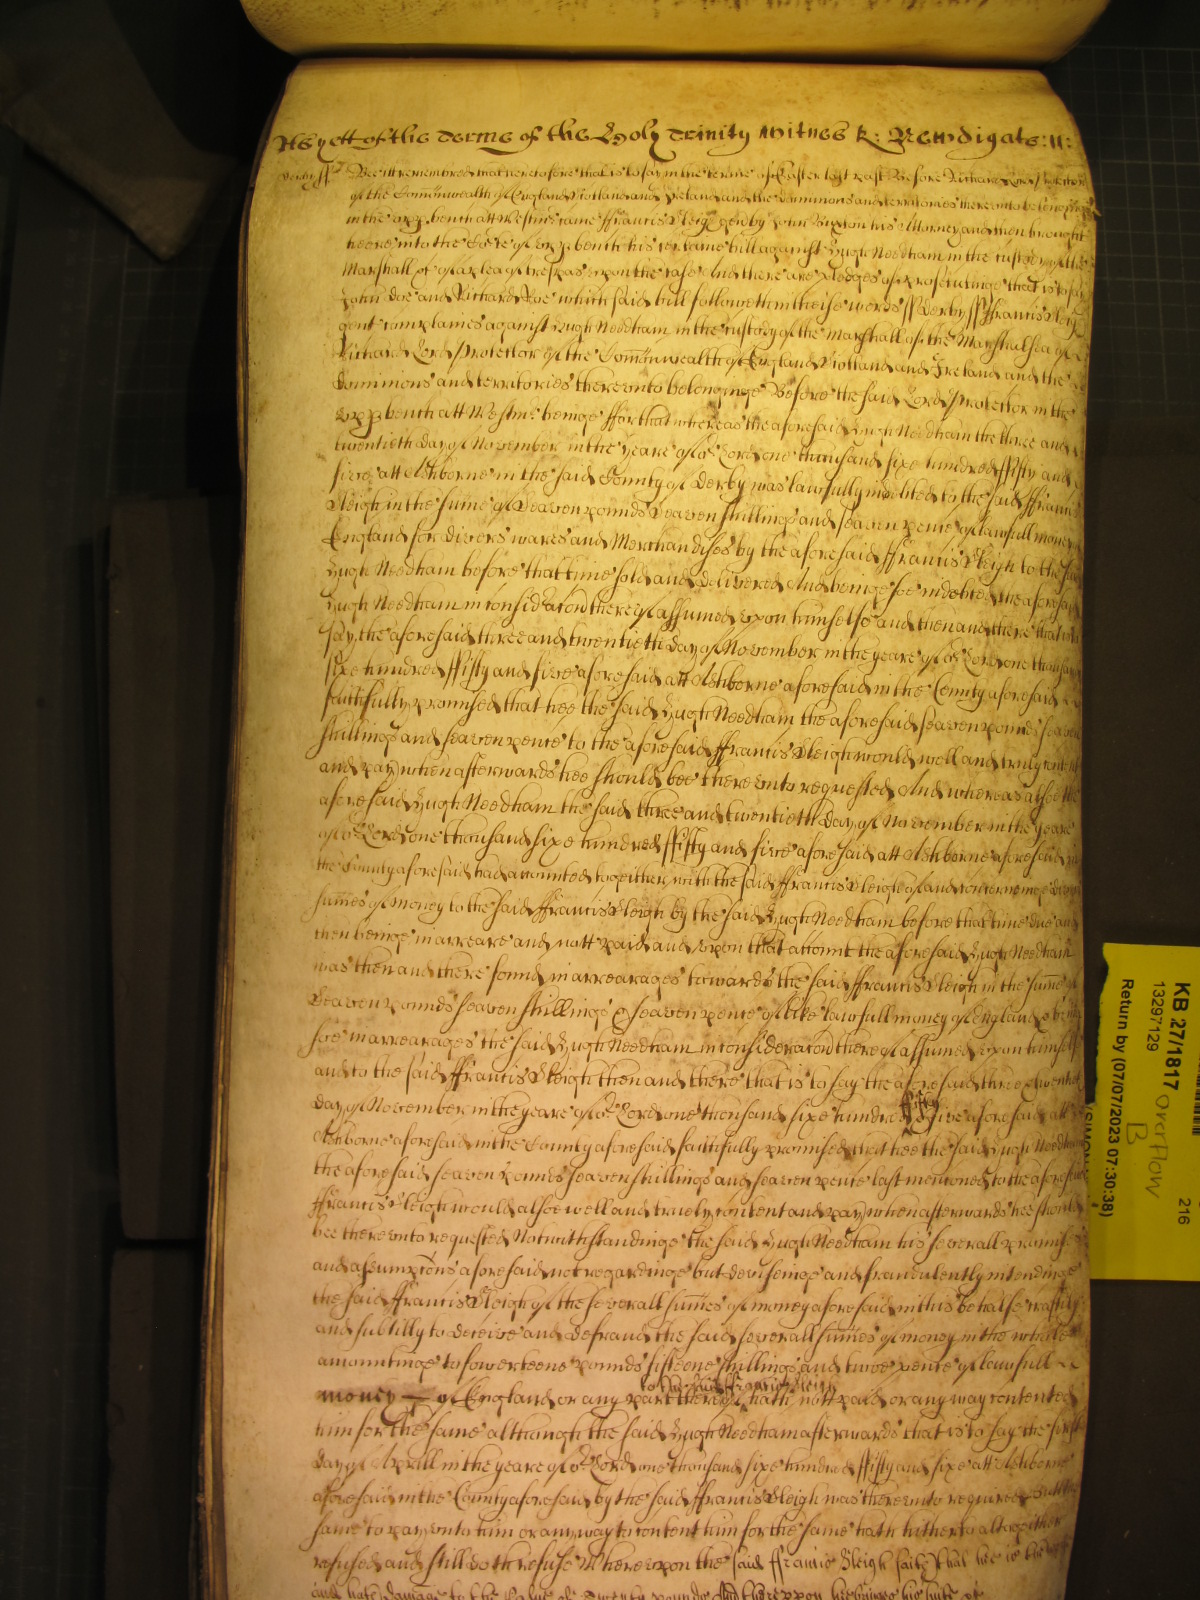 As yett of the Terme of the Holy Trinity Witnes R: Newdigate: 11:
Derby ss Bee itt remembred that heretofore that is to say in the terme of Easter last past Before Richard Lord Protector
of the Com̄onwealth of England Scotland and Ireland and the Dominions and territories thereunto belonginge
in the upp. bench att Westmr came ffrancis Sleigh gent by John Buxton his Attorney and then brought
heere into the Court of upp. bench his certaine bill against Hugh Needham in the custody of the
Marshall &c of a plea of trespas upon the case And there are pledges of prosecutinge that is to say
John Doe and Richard Roe which said bill followeth in theise words ss Derby ss ffrancis Sleigh
gent complaines against Hugh Needham in the custody of the Marshall of the Marshalsea of
Richard Lord Protector of the Com̄onwealth of England Scotland and Ireland and the
Dominions and territories thereunto belonginge Before the said Lord Protector in the
upp bench att Westmr. beinge ffor that whereas the aforesaid Hugh Needham the three and
twentieth day of November in the yeare of or Lord one thousand sixe hundred ffifty and
five att Ashborne in the said County of Derby was lawfully indebted to the said ffrancis
Sleigh in the sum̄e of Seaven pounds Seaven shillings and seaven pence of lawfull money of
England for divers wares and Merchandises by the aforesaid ffrancis Sleigh to the said
Hugh Needham before that time sold and delivered And beinge soe indebted the aforesaid
Hugh Needham in consideracon thereof assumed upon himselfe and then and there that is to
say the aforesaid three and twentieth day of November in the yeare of or Lord one thousand
sixe hundred ffifty and five aforesaid att Ashborne aforesaid in the County aforesaid
faithfully promised that hee the said Hugh Needham the aforesaid seaven pounds seaven
shillings and seaven pence to the aforesaid ffrancis Sleigh would well and truly content
and pay when afterwards hee should bee thereunto requested And whereas alsoe the
aforesaid Hugh Needham the said three and twentieth day of November in the yeare
of or Lord one thousand sixe hundred ffifty and five aforesaid att Ashborne aforesaid in
the County aforesaid had accounted togeither with the said ffrancis Sleigh of and concerninge divers
sum̄es of money to the said ffrancis Sleigh by the said Hugh Needham before that time due and
then beinge in arreare and nott paid and upon that account the aforesaid Hugh Needham
was then and there found in arrearages towards the said ffrancis Sleigh in the sum̄e of
Seaven pounds seaven shillings & seaven pence of like lawfull money of England & beinge
soe in arrearages the said Hugh Needham in consideracon thereof assumed upon himselfe
and to the said ffrancis Sleigh then and there that is to say the aforesaid three & twentieth
day of November in the yeare of or Lord one thousand sixe hundred ffifty & five aforesaid att
Ashborne aforesaid in the County aforesaid faithfully promised that hee the said Hugh Needham
the aforesaid seaven pounds seaven shillings and seaven pence last mencioned to the aforesaid
ffrancis Sleigh would alsoe well and truely content and pay when afterwards hee should
bee thereunto requested Notwithstandinge the said Hugh Needham his severall promises
and assumpcons aforesaid not regardinge but deviseinge and fraudulently intendinge
the said ffrancis Sleigh of the severall sum̄es of money aforesaid in this behalfe craftily
and subtilly to deceive and defraud the said severall sum̄es of money in the whole
amountinge to fowerteene pounds fifteene shillings and twoe pence of lawfull
to the said ffrancis Sleigh
money of England or any part thereof hath nott paid or any way contented
him for the same although the said Hugh Needham afterwards that is to say the first
day of Aprill in the yeare of or Lord one thousand sixe hundred ffifty and sixe att Ashborne
aforesaid in the County aforesaid by the said ffrancis Sleigh was thereunto required But the
same to pay unto him or any way to content him for the same hath hitherto altogeither
refused and still doth refuse Whereupon the said ffrancis Sleigh saith that hee is the worse
and hath damage to the value of Twenty pounds And thereupon hee brings his suite &c
KB 27/1817
overflow
B
13297129
216
Return by (07/07/2023 07:30:38)